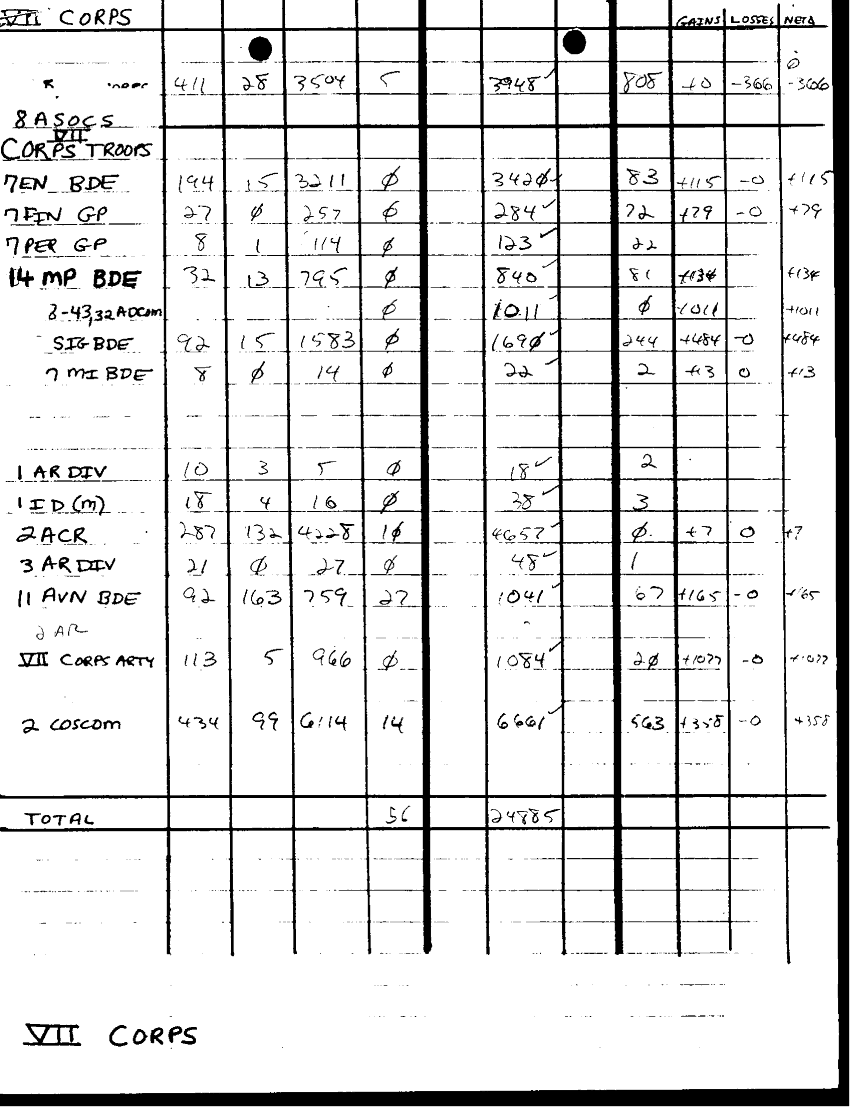 VII CORPS GAINS LOSSES NETΔ
0
411 28 3504 5 3948✓ 808 +0 -366 -366
8 ASOCS
VII
CORPS TROOPS
7EN BDE 194 15 3211 Ø 342Ø✓ 83 +115 -0 +115
7 FIN GP 27 Ø 257 Ø 284✓ 72 +79 -0 +79
7 PER GP 8 1 114 Ø 123✓ 22
14 MP BDE 32 13 795 Ø 840✓ 81 +134 +134
3-43,32 ADCOM Ø 1011✓ Ø +1011 +1011
SIG BDE 92 15 1583 Ø 169Ø✓ 244 +484 -0 +484
7 MI BDE 8 Ø 14 Ø 22✓ 2 +13 0 +13
1 AR DIV 10 3 5 Ø 18✓ 2
1 ID (M) 18 4 16 Ø 38✓ 3
2 ACR 287 132 4228 1Ø 4657✓ Ø +7 0 +7
3 AR DIV 21 Ø 27 Ø 48✓ 1
11 AVN BDE 92 163 759 27 1041✓ 67 +165 -0 +165
2 AR
VII CORPS ARTY 113 5 966 Ø 1084✓ 2Ø +1077 -0 +1077
2 COSCOM 434 99 6114 14 6661✓ 563 +358 -0 +358
TOTAL 56 24885
VII CORPS